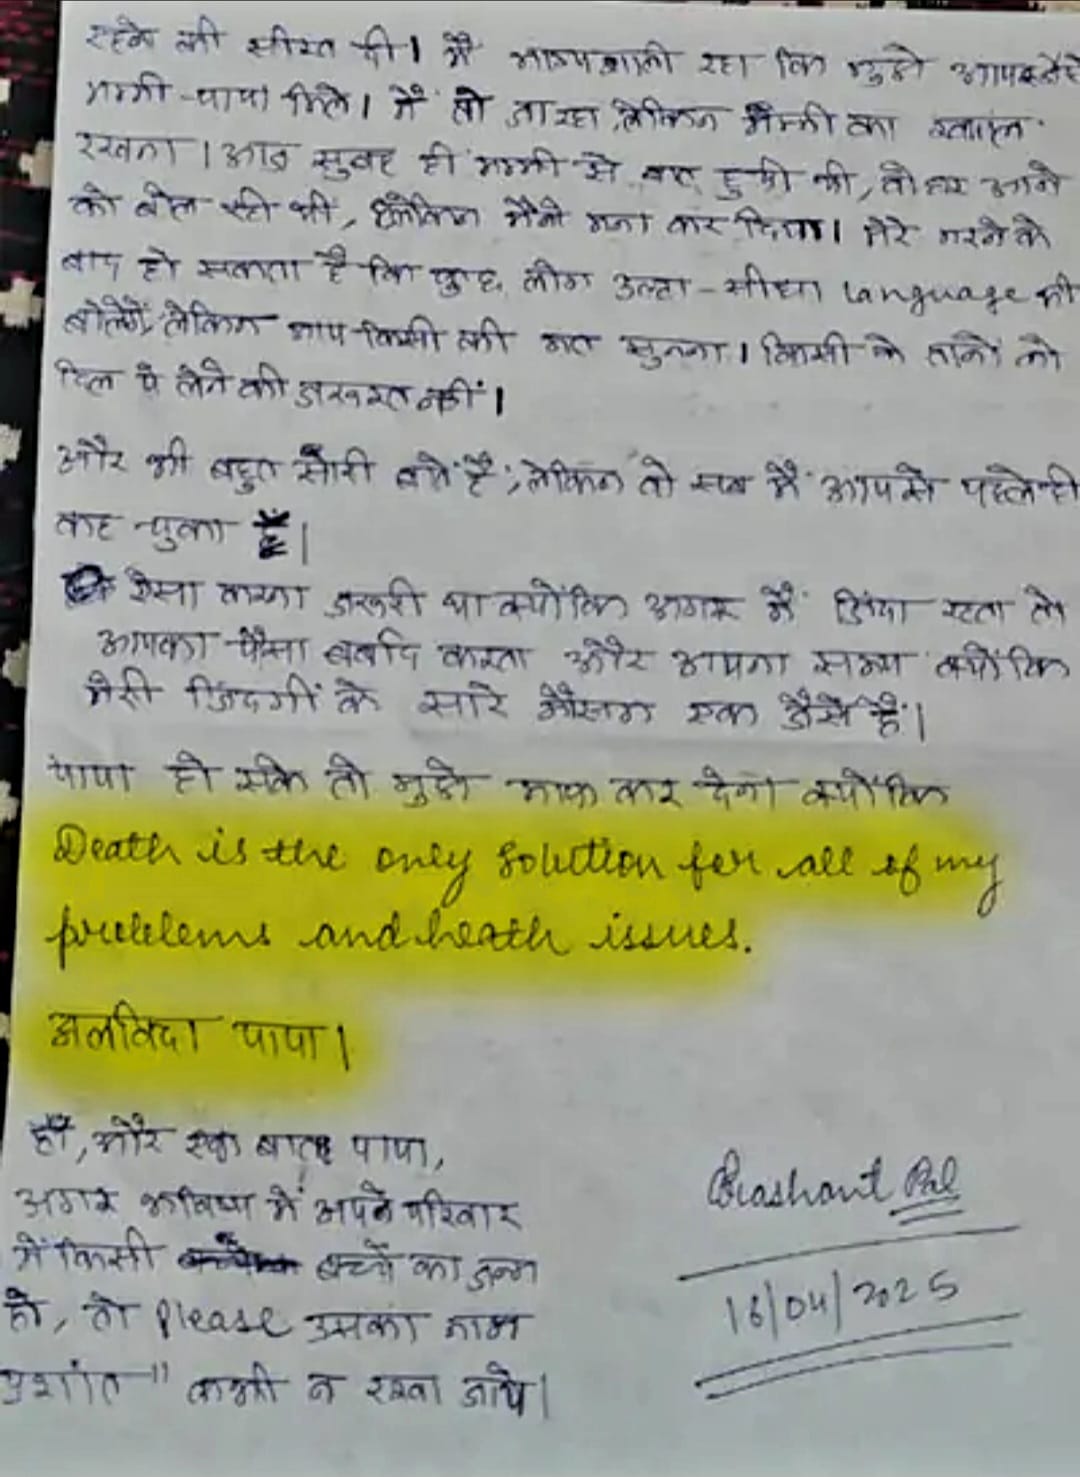 रहने की सीख दी। मैं भाग्यशाली रहा कि मुझे आप जैसे
मम्मी-पापा मिले। मैं तो जा रहा, लेकिन मम्मी का ख्याल
रखना। आज सुबह ही मम्मी से बात हुयी थी, वो घर आने
को बोल रही थी, लेकिन मैंने मना कर दिया। मेरे मरने के
बाद हो सकता है कि कुछ लोग उल्टा-सीधा Language भी
बोलेंगे, लेकिन आप किसी की मत सुनना। किसी के तानों को
दिल पे लेने की जरूरत नहीं।
और भी बहुत सारी बातें हैं, लेकिन वो सब मैं आपसे पहले ही
कह चुका हूँ।
ऐसा करना जरूरी था क्योंकि अगर मैं जिंदा रहता तो
आपका पैसा बर्बाद करता और अपना समय क्योंकि
मेरी जिंदगी के सारे मौसम एक जैसे हैं।
पापा हो सके तो मुझे माफ कर देना क्योंकि
Death is the only solution for all of my
problems and heath issues.
अलविदा पापा।
हाँ, और एक बात पापा,
अगर भविष्य में अपने परिवार
में किसी बच्चों का जन्म
हो, तो Please उसका नाम
प्रशांत" कभी न रखा जाये।
Prashant Pal
16/04/2025